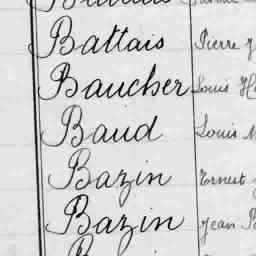 Battais Pierre
Baucher Louis
Baud Louis
Bazin Ernest
Bazin Jean